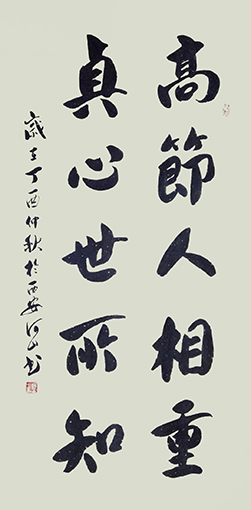 高節人相重
真心世所知
歲在丁酉仲秋於西安河山書